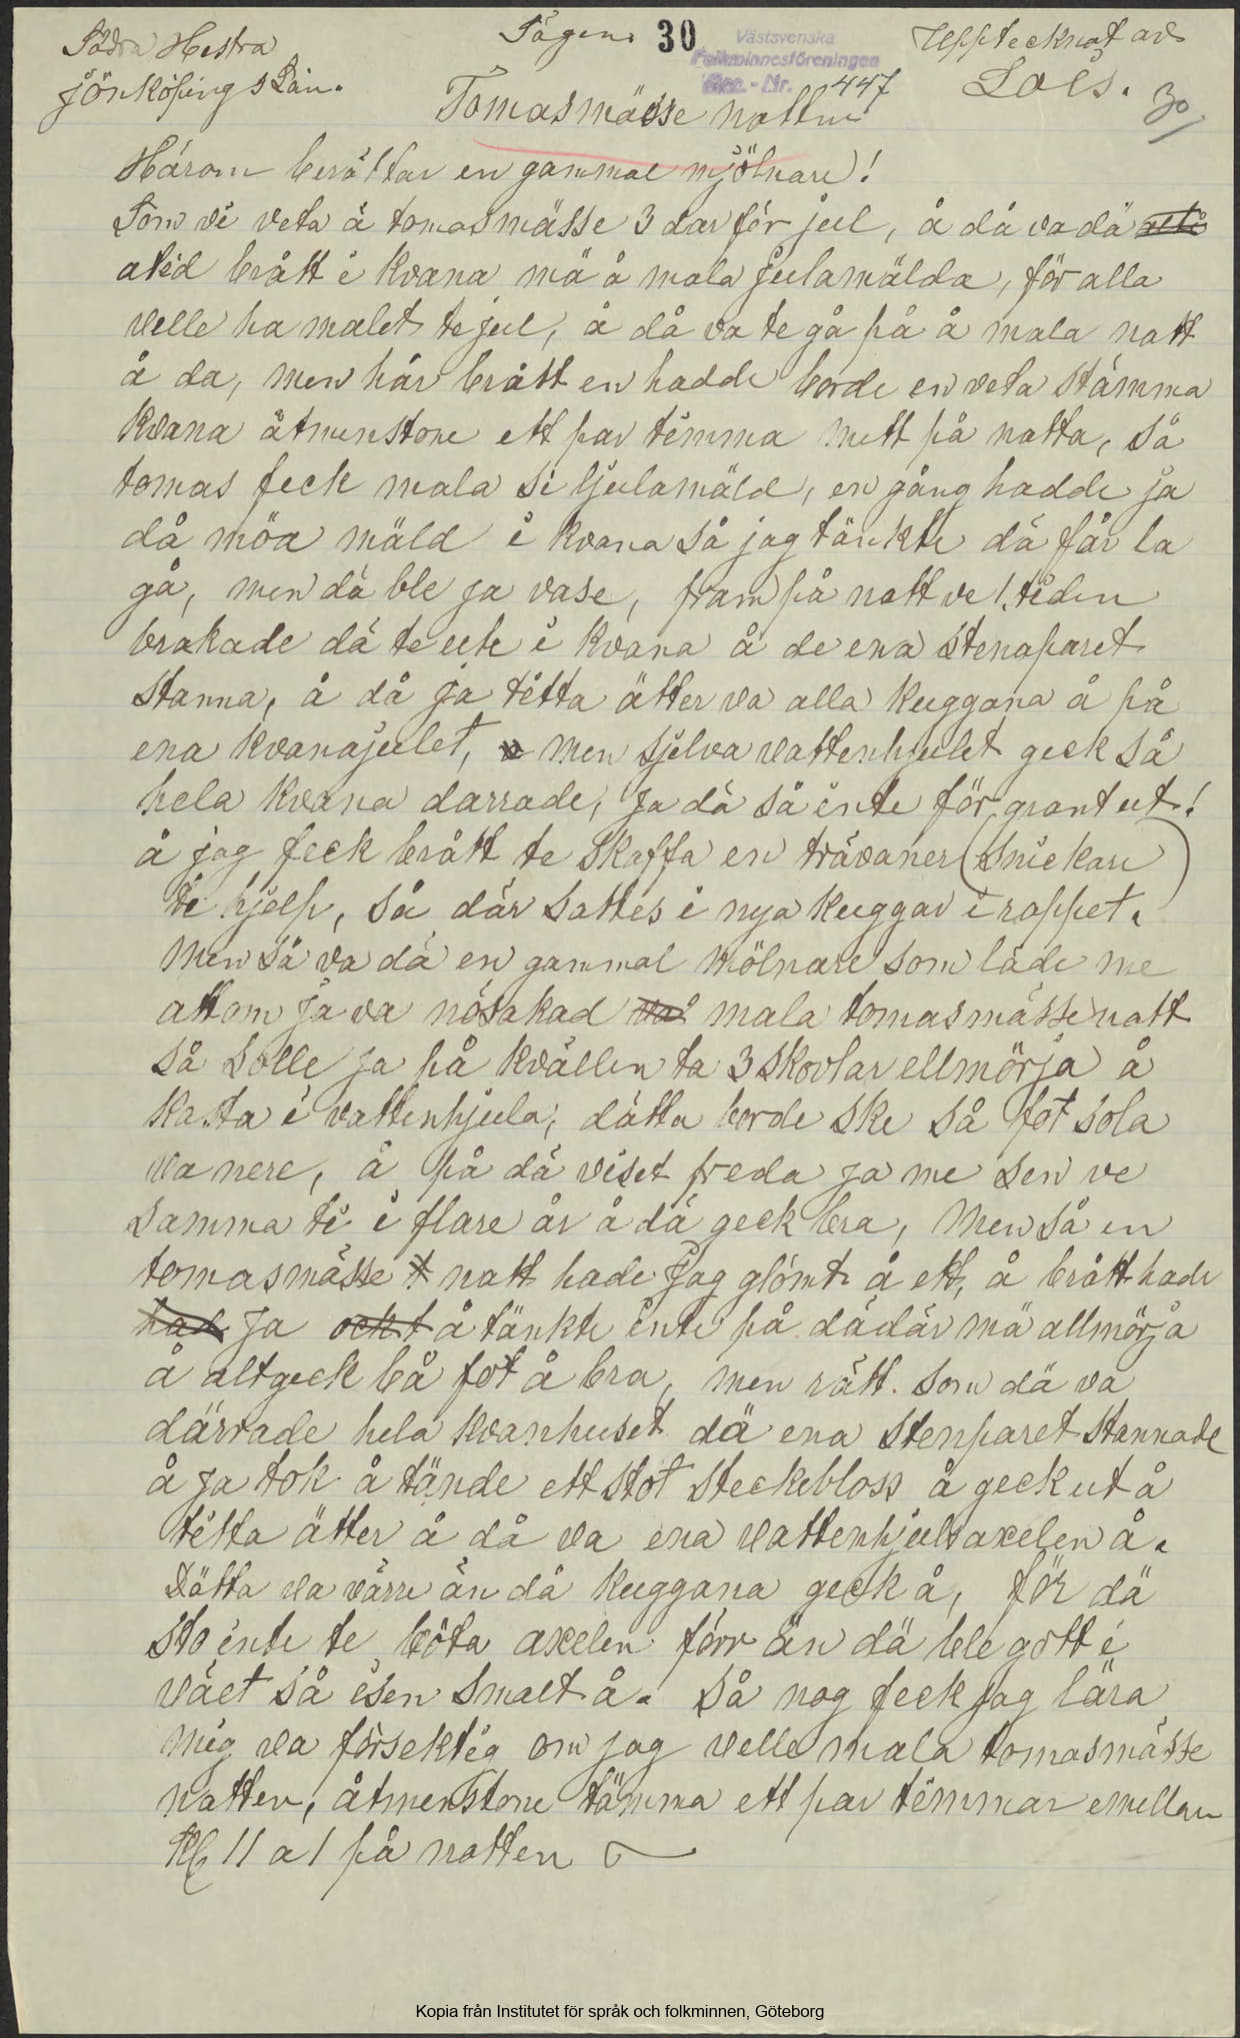 Södra Hestra
Jönköpings Län.
Sägen. 30
Västsvenska
Folkminnesföreningen
Acc. - Nr. 447
Upptecknat av
Loës. 30
Tomasmässe natten
Härom berättar en gammal mjölnare!
Som vi veta ä tomasmässe 3 dar för jul, å då va dä
altid brått i kvana mä å mala julamälda, för alla
velle ha malet te jul, å då va te gå på å mala natt
å da, men hår brått en hadde borde en veta stämma
kvana åtmenstone ett par témma mett på natta, så
tomas feck mala si ljulamäld, en gång hadde ja
då möa mäld i kvana så jag tänkte dä får la
gå, men dä ble ja vase, fram på natt ve 1. tiden
brakade dä te ute i kvana å de ena stenaparet
stanna, å då ja tétta ätter va alla kuggana å på
ena kvanajulet, men sjelva vattenhjulet geck så
hela kvana darrade, ja dä så ente för grant ut!
å jag feck brått te skaffa en trävaner (snickare)
te hjelp, så där sattes i nya kuggar i roppet.
Men så va dä en gammal mölnare som läde me
att om ja va nösakad mala tomasmässe natt
så solle ja på kvällen ta 3 skovlar ellmörja å
kasta i vattenhjula, dätta borde ske så fot sola
va nere, å på dä viset freda ja me sen ve
samma ti i flare år å dä geck bra, Men så en
tomasmässe natt hade jag glömt å ett, å brått hade
ja å tänkte ente på dädär mä allmörja
å alt geck bå fot å bra, men rätt som dä va
därrade hela kvanhuset dä ena stenparet stannade
å ja tok å tände ett stot steckebloss å geck ut å
tétta ätter å då va ena vattenhjulsaxelen å.
Dätta va värre än då kuggana geck å, för dä
sto ente te böta axelen förr än dä ble gott i
väet så isen smalt å. Så nog feck jag lära
mig va försektig om jag velle mala tomasmässe
natten, åtmenstone tämma ett par témmar emellan
kl 11 a 1 på natten
Kopia från Institutet för språk och folkminnen, Göteborg